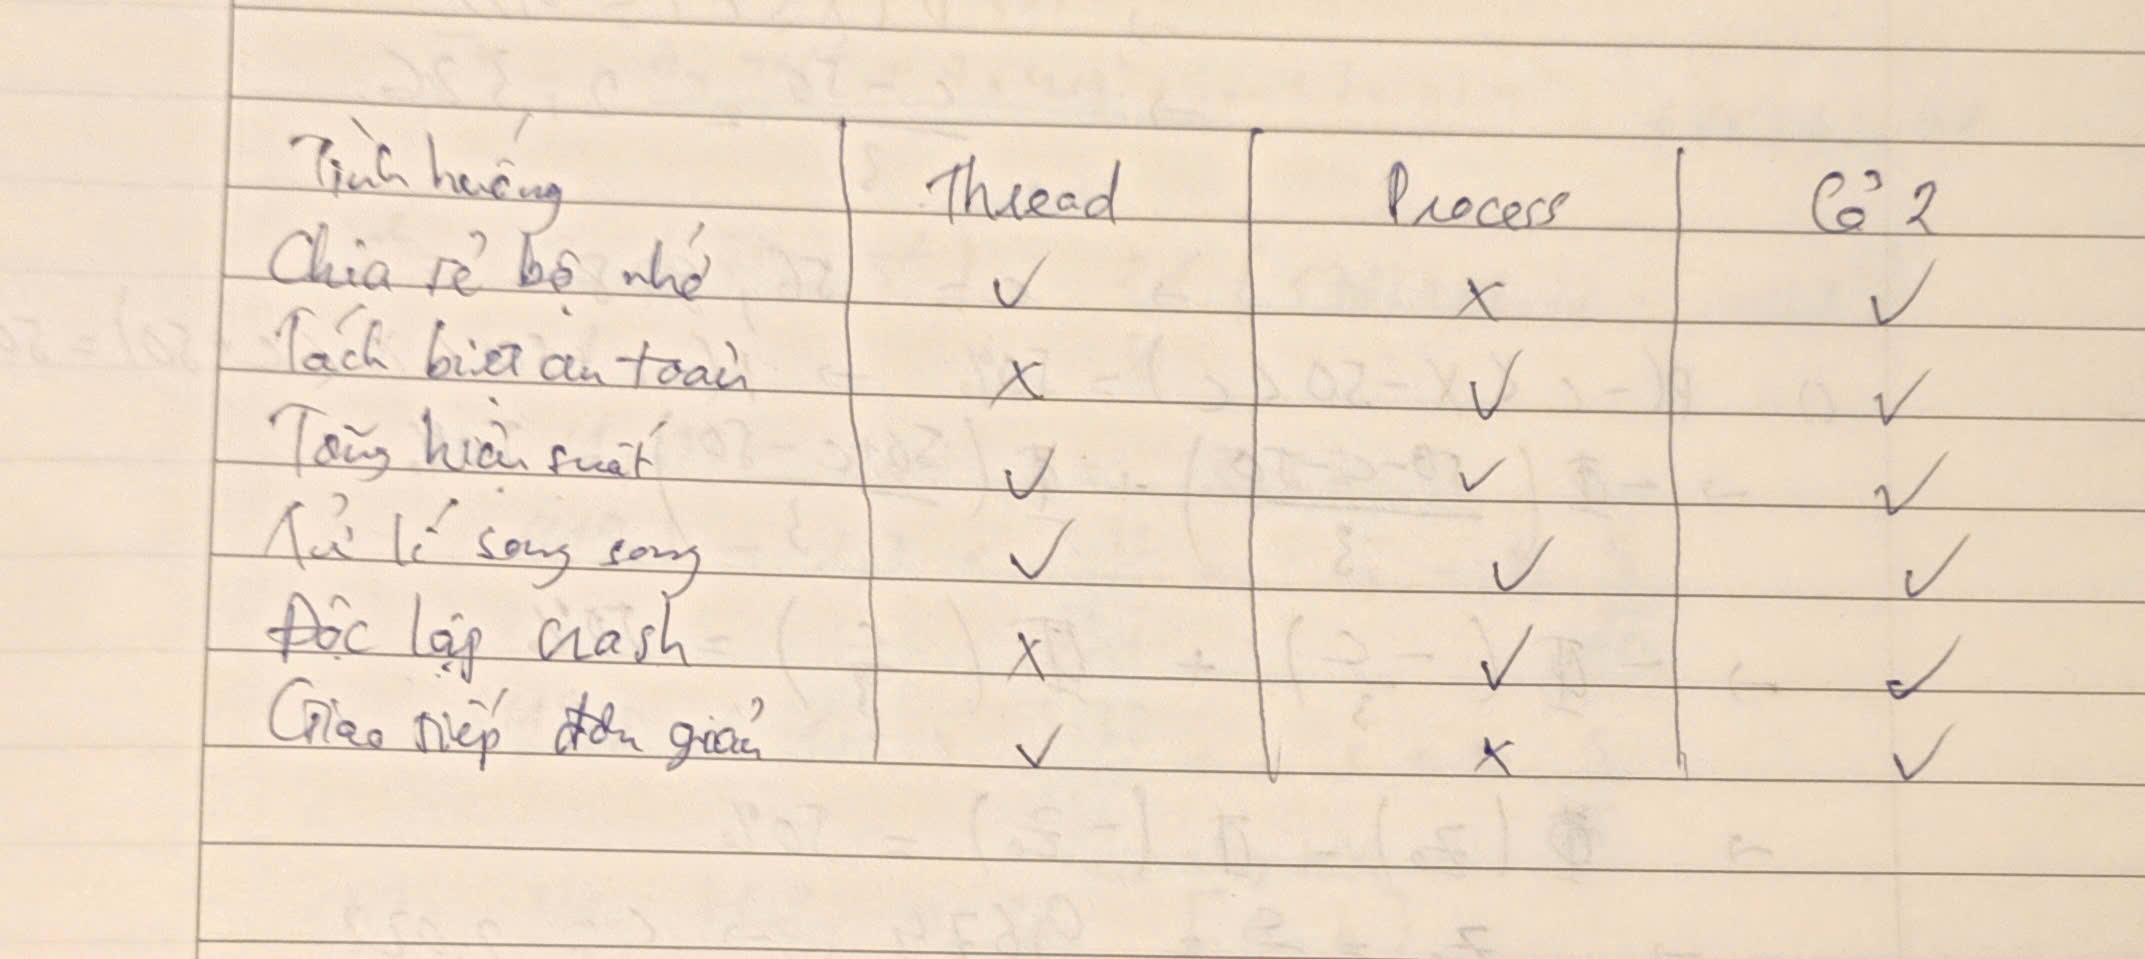 Tình huống Thread Process Cả 2
Chia sẻ bộ nhớ ✓ x ✓
Tách biệt an toàn x ✓ ✓
Tăng hiệu suất ✓ ✓ ✓
Xử lí song song ✓ ✓ ✓
Độc lập crash x ✓ ✓
Giao tiếp đơn giản ✓ x ✓